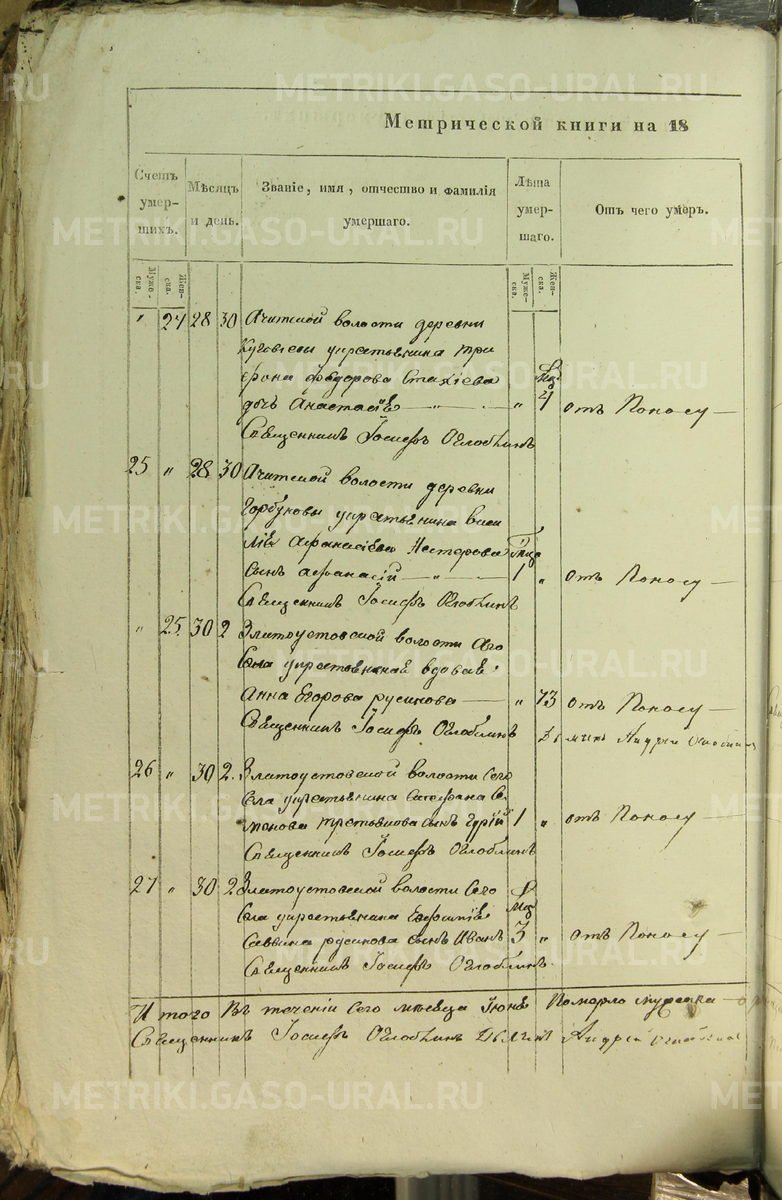 METRIKI.GASO-URAL.RU
Метрической книги на 18
Счетъ умер- шихъ.
Мѣсяцъ и день.
Званіе, имя, отчество и фамилія умершаго.
Лѣта умер- шаго.
Отъ чего умеръ.
Муже- ска.
Жен- ска.
Муже- ска.
Жен- ска.
" 24 28 30 Ачитской волости деревни
крестьянина Три
фона Федорова Стахіева
дочь Анастасія " 4 отъ Поносу
Священникъ Іосифъ Оглоблинъ
25 " 28 30 Ачитской волости деревни
Горбуновы крестьянина Васи
лія Афанасіева Нестерова
сынъ Афанасій 1 " отъ Поносу
Священникъ Іосифъ Оглоблинъ
" 25 30 2 Златоустовской волости сего
села крестьянская вдова
Анна Егорова Русинова " 73 отъ Поносу
Священникъ Іосифъ Оглоблинъ
Андрей
26 " 30 2. Златоустовской волости сего
села крестьянина Стефана Се
менова Третьякова сынъ Гурій 1 " отъ Поносу
Священникъ Іосифъ Оглоблинъ
27 " 30 2 Златоустовской волости сего
села крестьянина
Саввина Русинова сынъ Иванъ 3 " отъ Поносу
Священникъ Іосифъ Оглоблинъ.
Итого въ теченіи сего мѣсяца Іюня Померло мужеска
Священникъ Іосифъ Оглоблинъ Андрей